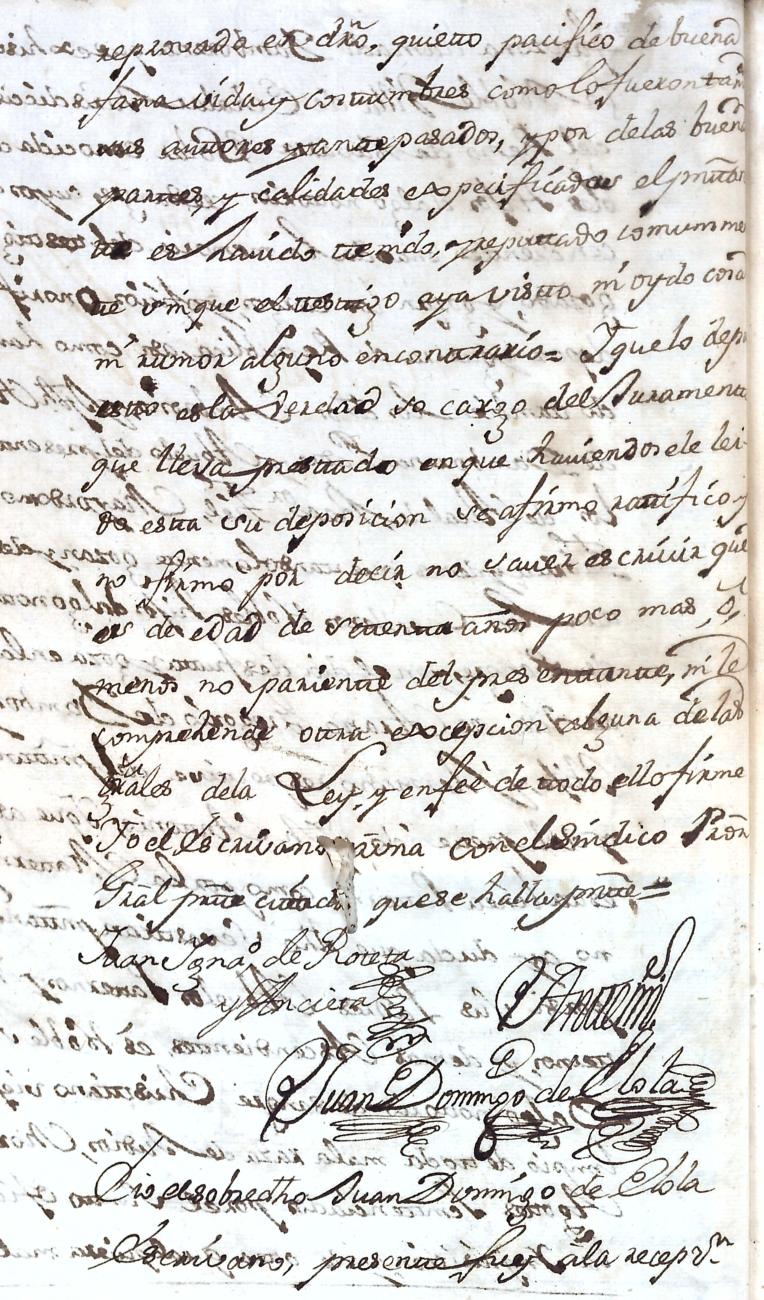 reprovada en dro, quieto pacifico de buena
fama vida y costumbres como lo fueron tam
sus autores y antepasados, y por de las buen
partes, y calidades expecificadas el presentan
te es havido tenido, y reputado comunme
te sin que el testigo aya visto ni oydo cosa
ni rumor alguno encontrario = Y que lo depu
esto es la Verdad so cargo del Juramento
que lleva prestado en que haviendosele lei
do esta su deposicion se afirmo ratifico y
no firmo por decir no saver escrivir que
es de edad de setenta años poco mas, o,
menos no pariente del presentante, ni le
comprehende otra excepcion alguna de las
grales de la Ley, y enfeè de todo ello firme
Yo el Escrivano con el Sindico Pror
Gral pnte que se halla pnte =
Juan Ygnaº de Roteta
y Ancieta
Antemi
Juan Domingo de Elola
Eio el sobredho Juan Domingo de Elola
Escrivano, presente fuy à la recepon